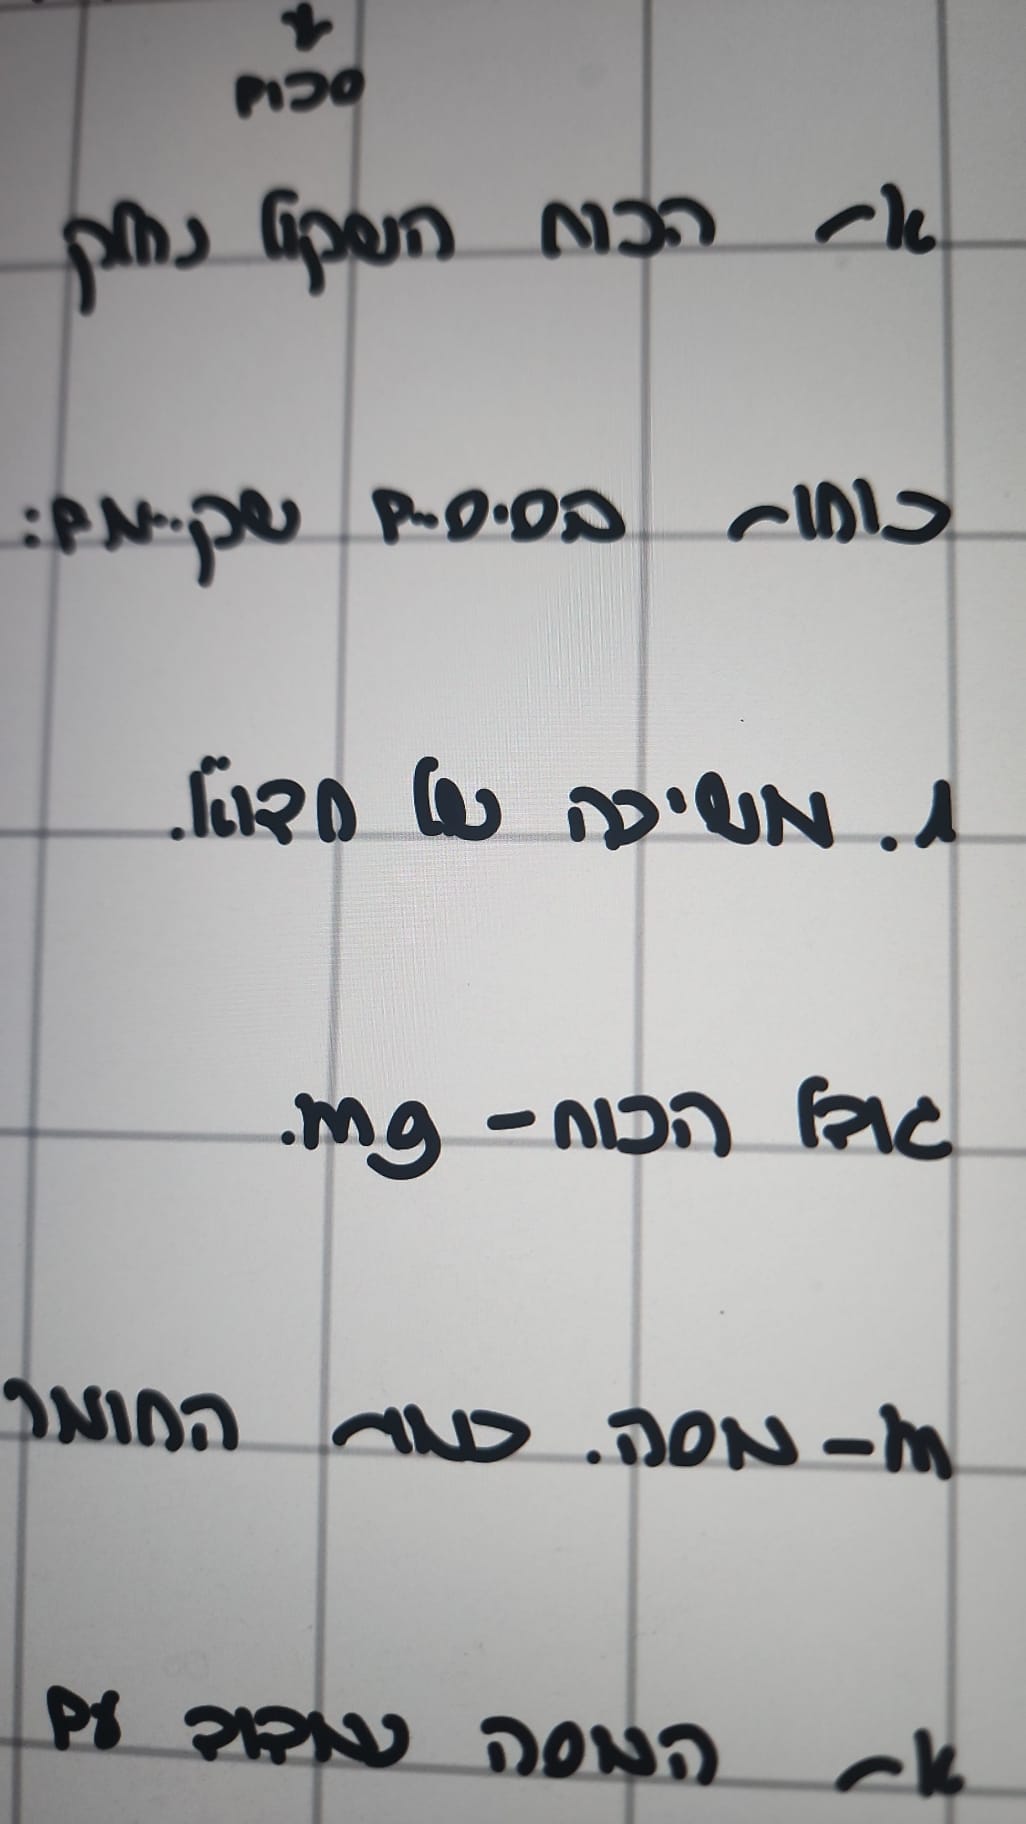 סכום
את הכוח השקול נחלק
כוחות בסיסיים שקיימים:
1. משיכה של
גודל הכוח - mg.
m - מסה. כמות החומר
את המסה נמדוד עם